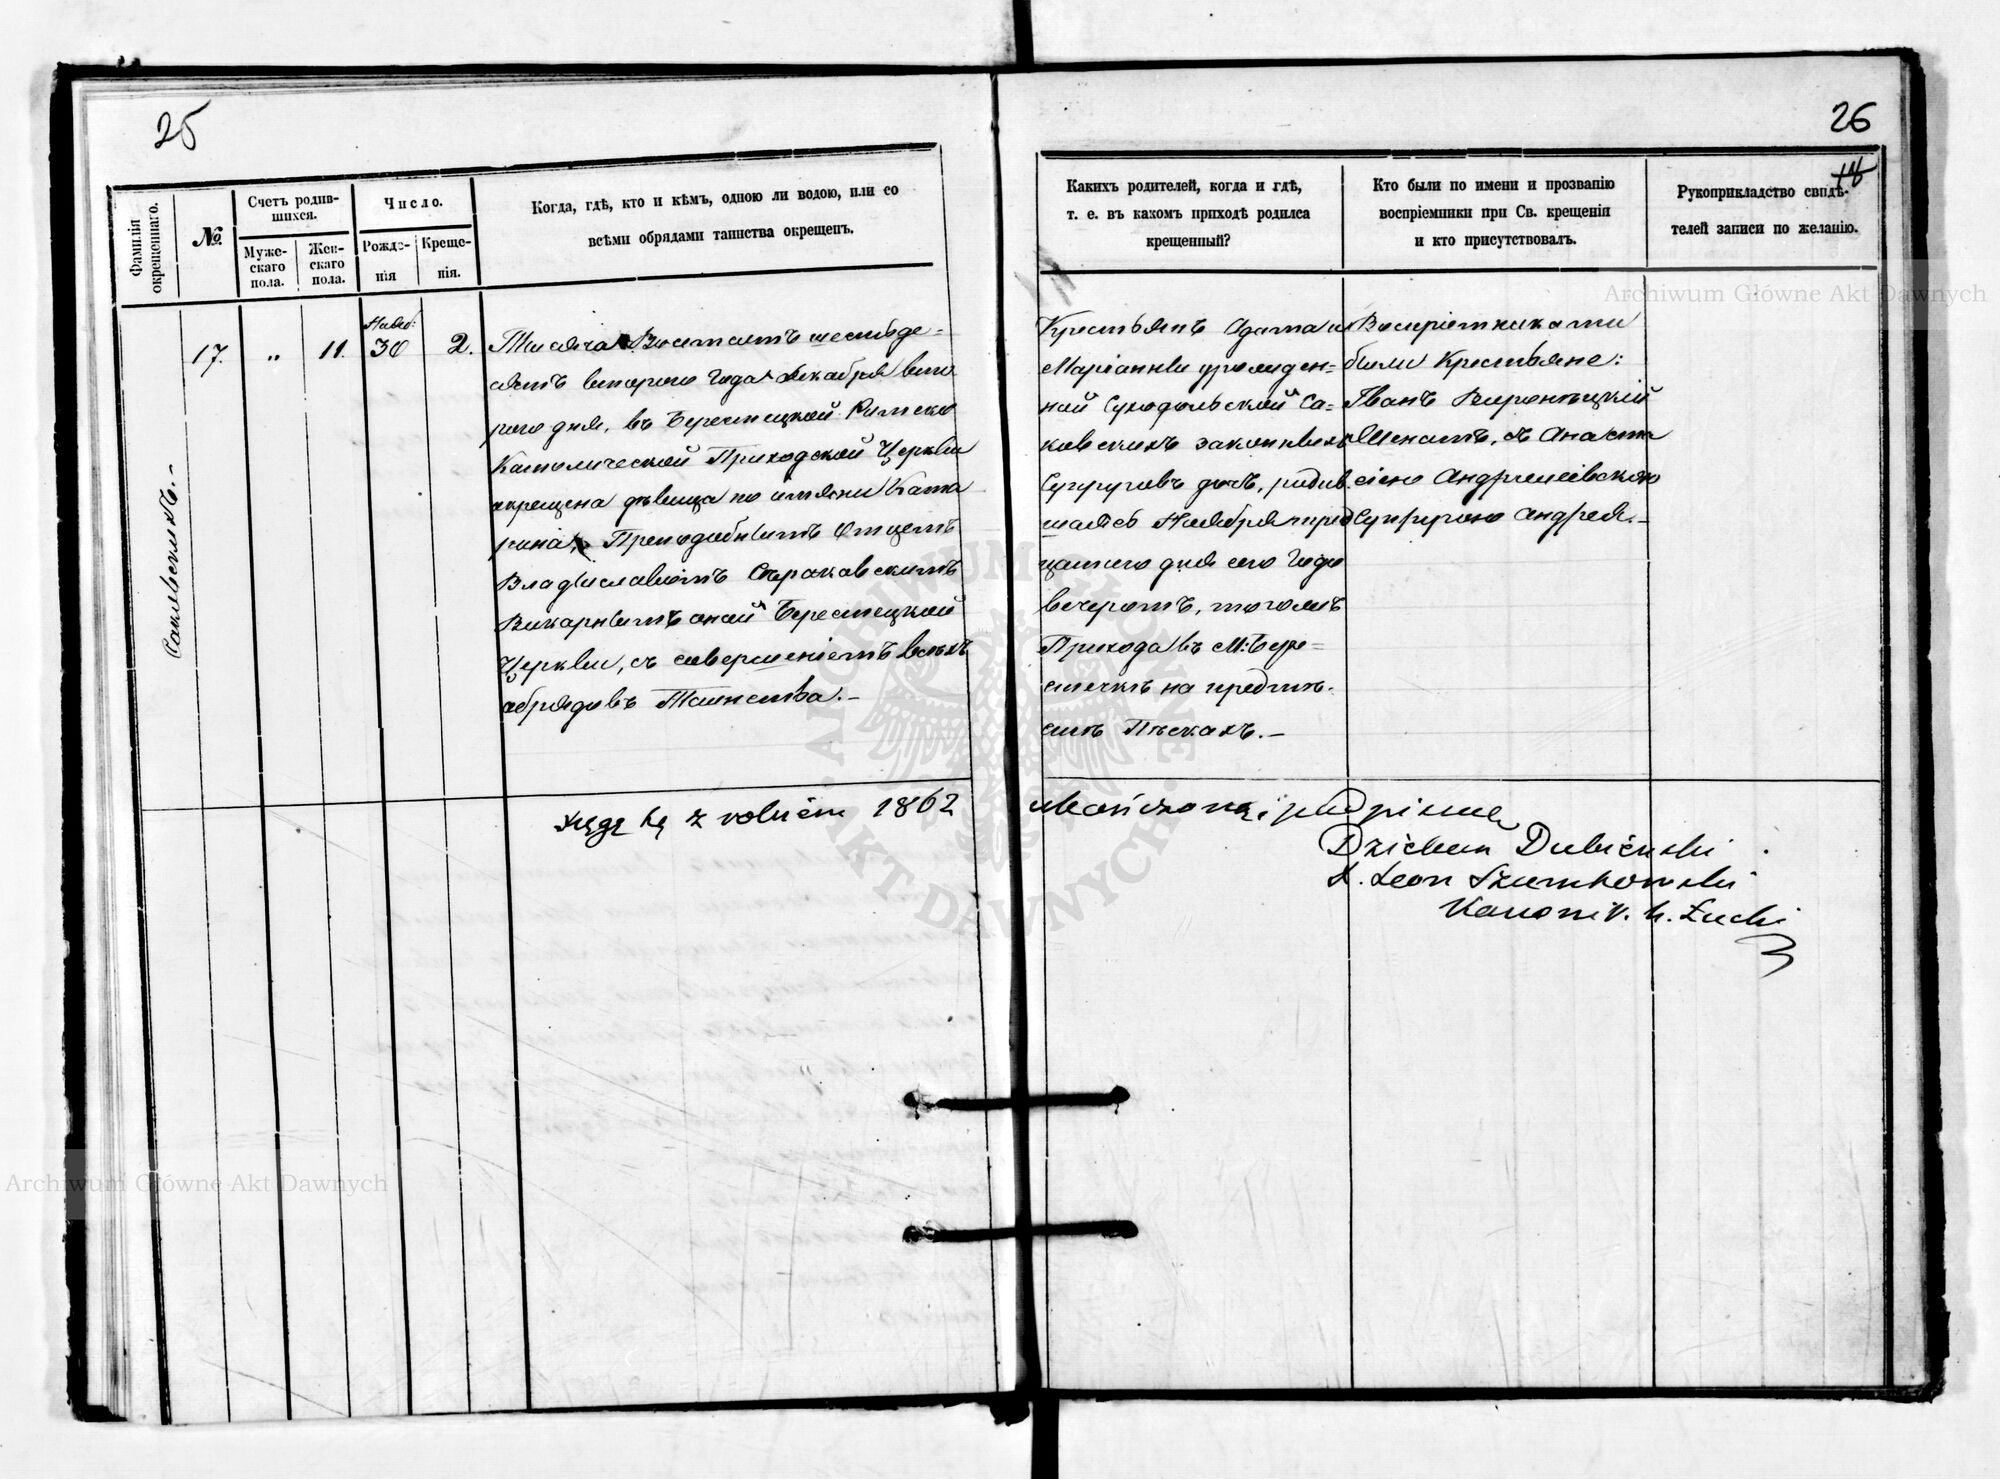 25
Фамилія окрещеннаго.
№
Счетъ родив-
шихся.
Муже-
скаго
пола.
Жен-
скаго
пола.
Число.
Рожде-
нія
Креще-
нія.
Когда, гдѣ, кто и кѣмъ, одною ли водою, или со
всѣми обрядами таинства окрещенъ.
17.
„
11.
Нояб:
30
2.
Тысяча Восемсотъ шестьде-
сятъ втораго года Декабря вто
раго дня, въ Берестецкой Римско
Католической Приходской Церкви
окрещена дѣвица по имяни Ката
рина, Преподобнымъ Отцемъ
Владиславомъ
Викарнымъ оной Берестецкой
Церкви, съ совершеніемъ всѣхъ
обрядовъ Таинства.-
Księgę tę z rokiem 1862
26
Archiwum Główne Akt Dawnych
Какихъ родителей, когда и гдѣ,
т. е. въ какомъ приходѣ родился
крещенный?
Кто были по имени и прозванію
воспріемники при Св. крещеніи
и кто присутствовалъ.
Рукоприкладство свидѣ-
телей записи по желанію.
Крестьянъ Адама и
Маріанны урожден-
ной Суходольской Са-
ковскихъ законныхъ
Супруговъ дочь, родив
шаяся Ноября трид
цатаго дня сего года
вечеромъ, тогожъ
Прихода въ М: Бере-
стечкѣ на предмѣ-
стѣ Пѣскахъ.-
Воспріемниками
были Крестьяне:
Иванъ
съ Анаста
сіею Андріевскою
Супругою Андрея.-
zakończoną podpisuję
Dziekan Dubieński
X. Leon Szumkowski
Kanonik. K. Łucki
ARCHIWUM GŁÓWNE AKT DAWNYCH
Archiwum Główne Akt Dawnych